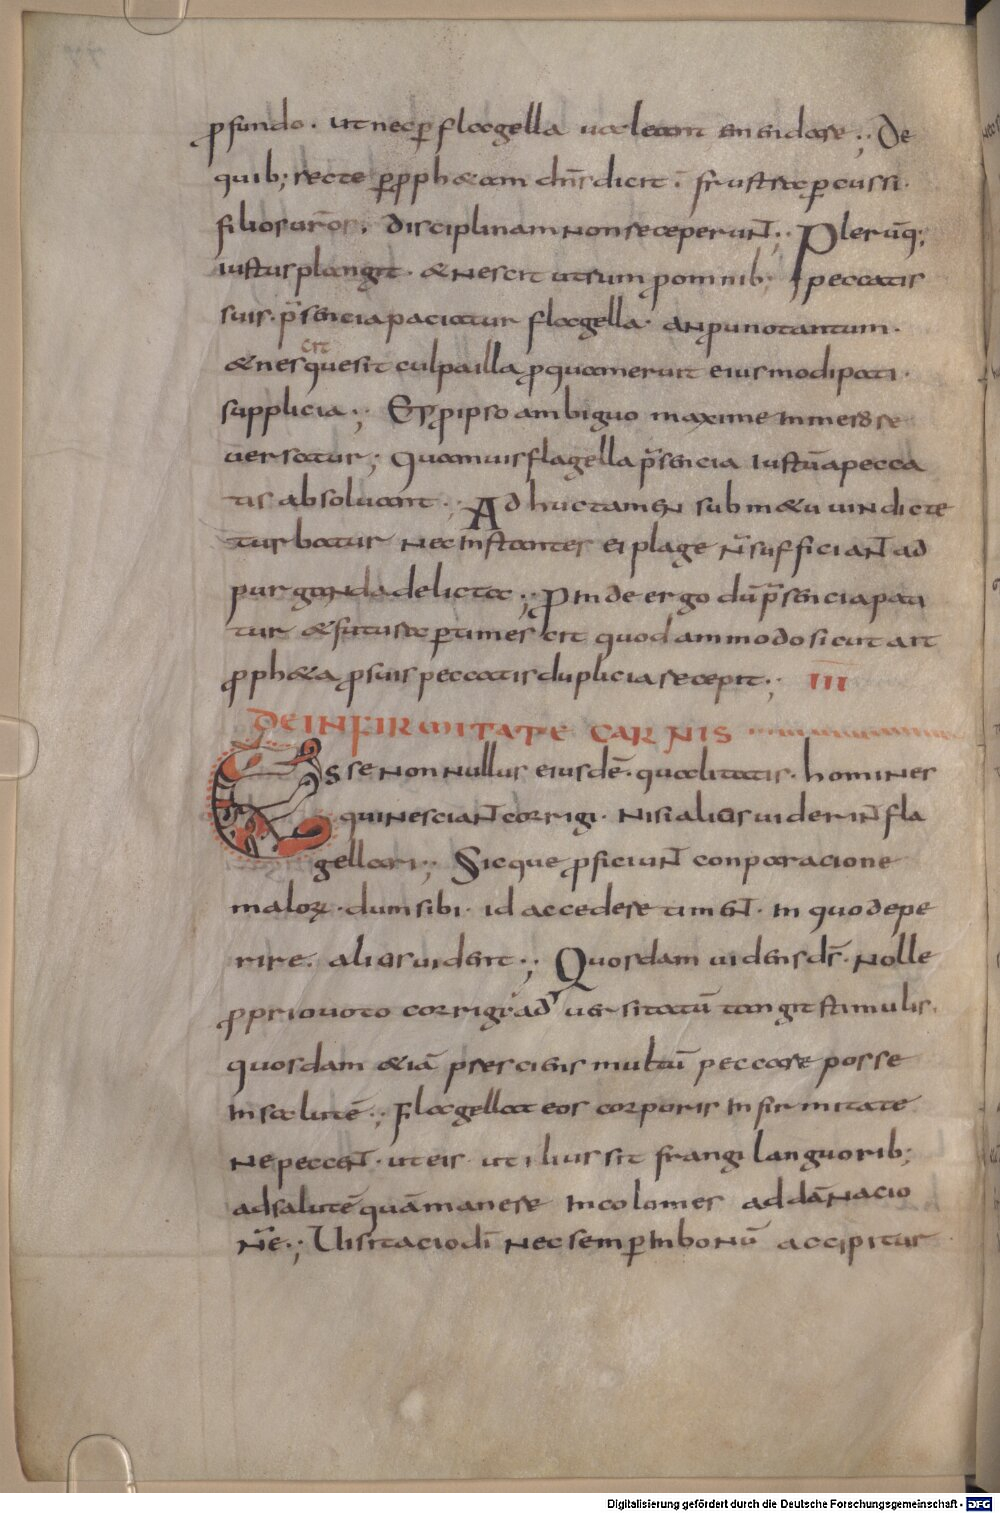 ꝓfundo. ut nec ꝑ flagella ualeant emendare·; De
quib; recte ꝑ ꝓph&am dn̄s dicit. frustra ꝑcussi.
filios ur̄os. disciplinam non receperunt̄·; Plerūq;
iustus plangit. & nescit utrum ꝓ omnib; peccatis
suis. p̄sencia paciatur flagella. an pun otantum.
cit
& nes que sit culpa illa ꝓ qua meruit eius modi pati.
supplicia·; Et ꝓ ipso ambiguo maxime in merore
uersatur; Quamuis flagella p̄sencia iustū a pecca
tis absoluant·; Adhuc tamen sub m&u uindicte
turbatur nec instantes ei plage n̄ sufficiant̄ ad
purganda delicta·; Ꝓinde ergo dū p̄sencia pati
tur & futura ꝑtimescit quodammodo sicut ait
ꝓph&a ꝓ suis peccatis duplicia recepit·; III
DE INFIRMITATE CARNIS
Esse non nullus eiusdē. qualitatis. homines
qui nesciant̄ corrigi. nisi alios uiderint̄ fla
gellari·; Sicque ꝓficiunt̄ conparacione
maloꝝ. dum sibi. id accedere timent̄. in quo depe
rire. alios uident·; Quosdam uidens d̄s. nolle
ꝓprio uoto corrigi aduersitatū tangit stimulis.
quosdam &iā presciens multū peccare posse
in salutē·; Flagellat eos corporis infirmitate
ne peccent̄. ut eis utilius sit frangi languorib;
ad salutē quā manere incolomes ad dānacio
n̄e·; Uisitacio dī nec semꝑ in bonū accipitur
Digitalisierung gefördert durch die Deutsche Forschungsgemeinschaft - DFG